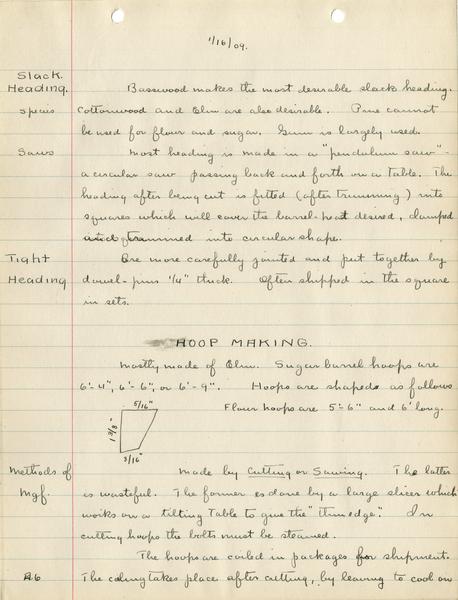 1/16/09.
Slack
Heading. Basswood makes the most desirable slack heading.
species Cottonwood and Elm are also desirable. Pine cannot
be used for flour and sugar. Gum is largely used.
Saws Most heading is made in a "pendulum saw" -
a circular saw passing back and forth on a table. The
heading after being cut is fitted (after trimming) into
squares which will cover the barrel-head desired, clamped
and trimmed into circular shape.
Tight Are more carefully jointed and put together by
Heading dowel-pins 1/4" thick. Often shipped in the square
in sets.
HOOP MAKING.
Mostly made of Elm. Sugar barrel hoops are
6'-4", 6'-6", or 6'-9". Hoops are shaped as follows
5/16" Flour hoops are 5'-6" and 6' long.
1 3/8"
3/16"
Methods of made by Cutting or Sawing. The latter
Mgf. is wasteful. The former is done by a large slicer which
works on a tilting table to give the "thin edge". In
cutting hoops the bolts must be steamed.
The hoops are coiled in packages for shipment.
26 The coiling takes place after cutting, by leaving to cool on